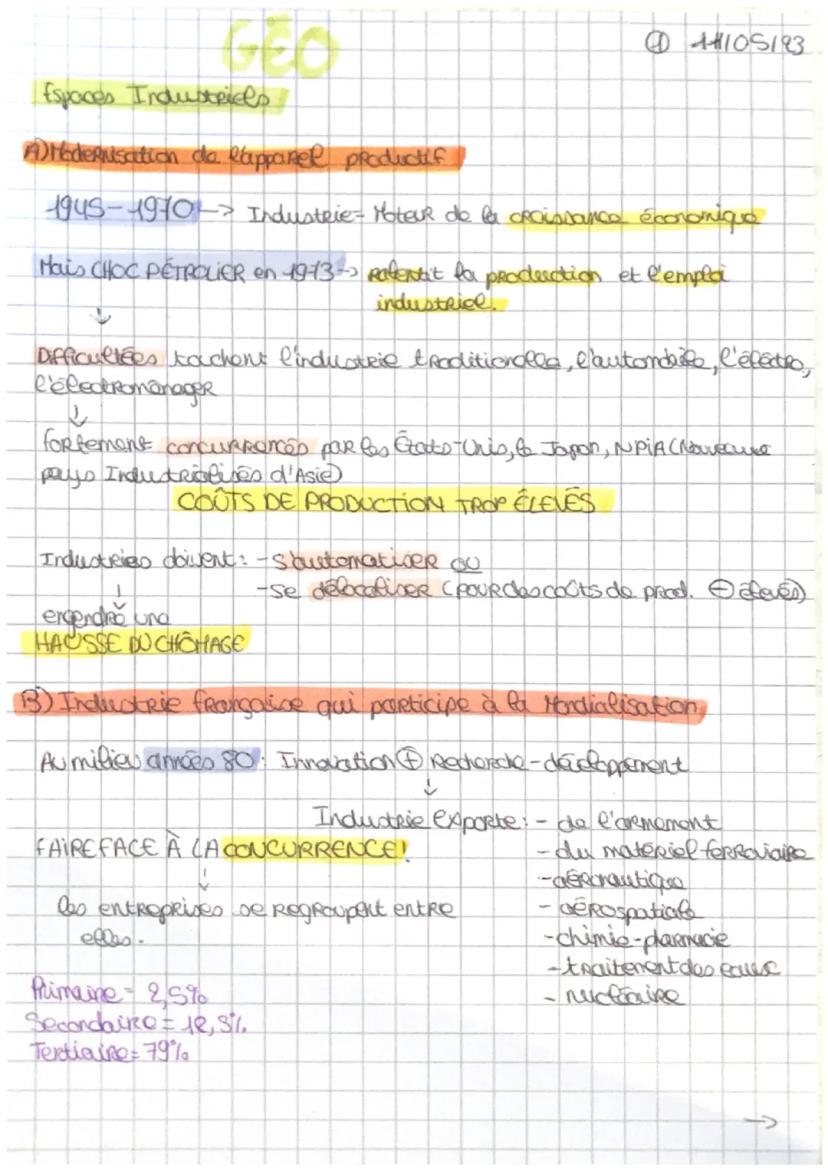 GÉO
① 11/05/23
Espaces Industriels
A) Modernisation de l'appareil productif
1945-1970 -> Industrie = Moteur de la croissance économique
Mais CHOC PÉTROLIER en 1973 -> ralentit la production et l'emploi
industriel.
↓
Difficultées touchent l'industrie traditionelle, l'automobile, l'électro,
l'électroménager
↓
fortement concurrencés par les États-Unis, le Japon, NPIA (Nouveaux
pays Industrialisés d'Asie)
COÛTS DE PRODUCTION TROP ÉLEVÉS
Industries doivent : - s'automatiser ou
- se délocaliser (pour des coûts de prod. ⊖ élevés)
↓
engendre une
HAUSSE DU CHÔMAGE
B) Industrie française qui participe à la Mondialisation
Au milieu années 80 : Innovation ⊕ Recherche-développement
↓
Industrie exporte : - de l'armement
- du matériel ferroviaire
- aéronautique
- aérospatiale
- chimie-pharmacie
- traitement des eaux
- nucléaire
FAIRE FACE À LA CONCURRENCE !
↓
les entreprises se regroupent entre
elles.
Primaire = 2,5%
Secondaire = 18,3%
Tertiaire = 79%
->